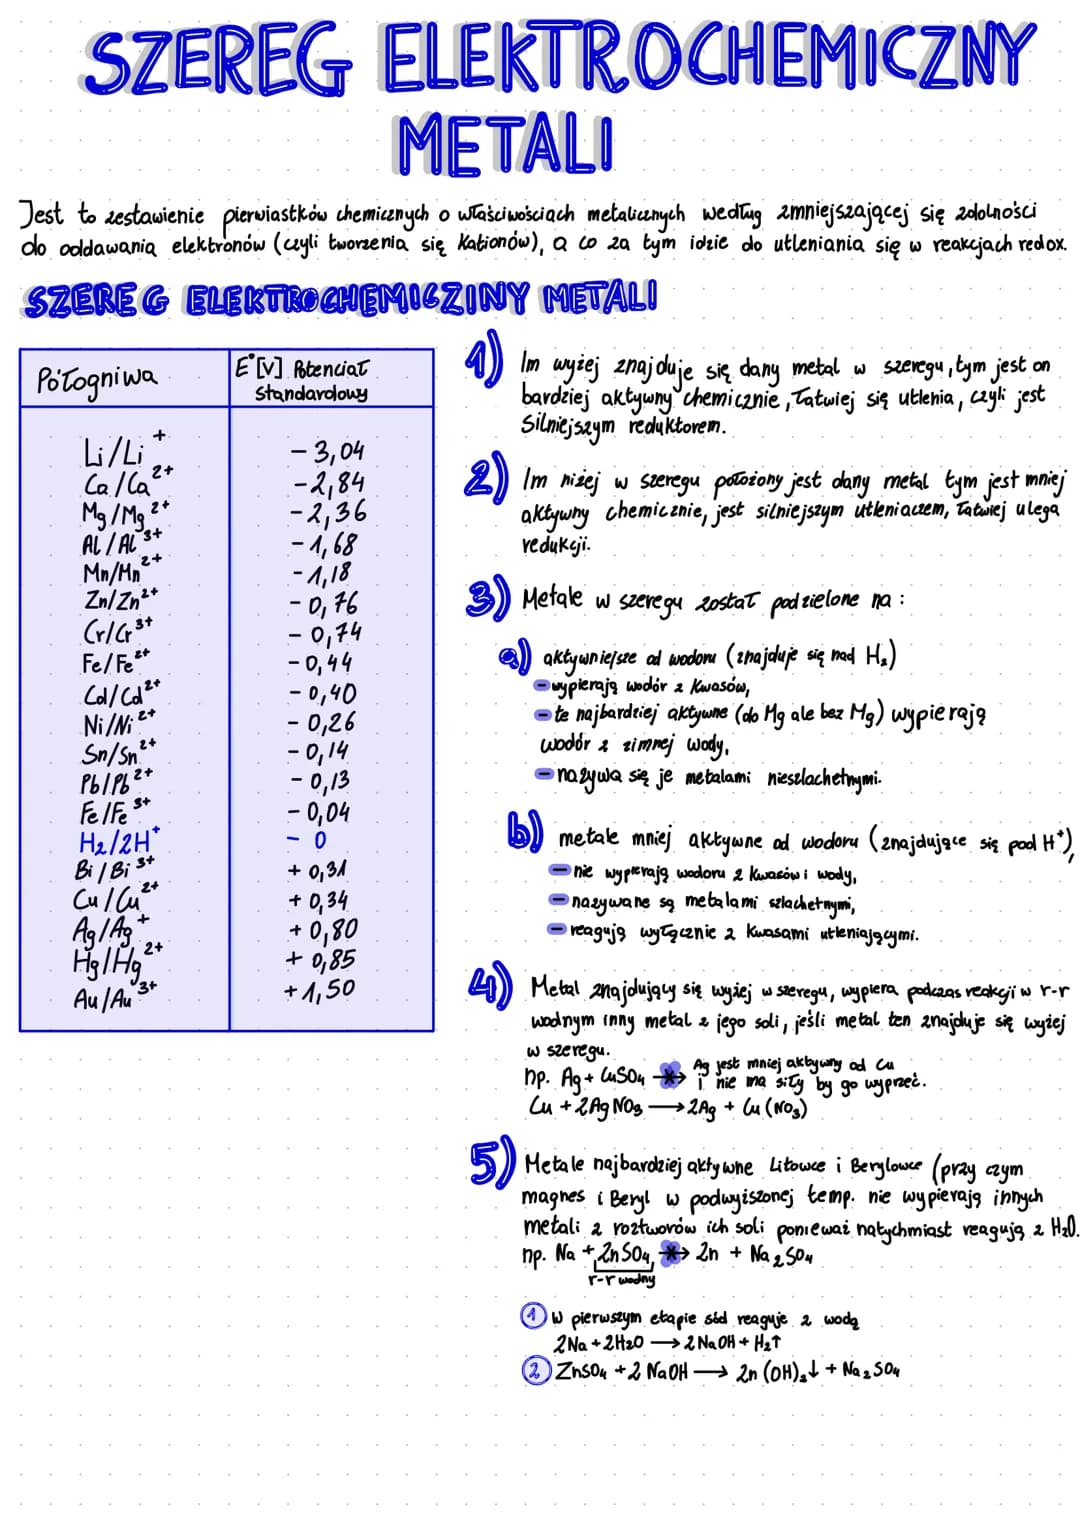 SZEREG ELEKTROCHEMICZNY
METALI
Jest to zestawienie pierwiastków chemicznych o właściwościach metalicznych według zmniejszającej się zdolności
do oddawania elektronów (czyli tworzenia się kationów), a co za tym idzie do utleniania się w reakcjach redox.
SZEREG ELEKTROCHEMICZINY METALI
Półogniwa E°[V] Potencjał
Standardowy
Li/Li⁺ -3,04
Ca/Ca²⁺ -2,84
Mg/Mg²⁺ -2,36
Al/Al³⁺ -1,68
Mn/Mn²⁺ -1,18
Zn/Zn²⁺ -0,76
Cr/Cr³⁺ -0,74
Fe/Fe²⁺ -0,44
Cd/Cd²⁺ -0,40
Ni/Ni²⁺ -0,26
Sn/Sn²⁺ -0,14
Pb/Pb²⁺ -0,13
Fe/Fe³⁺ -0,04
H₂/2H⁺ - 0
Bi/Bi³⁺ +0,31
Cu/Cu²⁺ +0,34
Ag/Ag⁺ +0,80
Hg/Hg²⁺ +0,85
Au/Au³⁺ +1,50
1) Im wyżej znajduje się dany metal w szeregu, tym jest on
bardziej aktywny chemicznie, łatwiej się utlenia, czyli jest
silniejszym reduktorem.
2) Im niżej w szeregu położony jest dany metal tym jest mniej
aktywny chemicznie, jest silniejszym utleniaczem, łatwiej ulega
redukcji.
3) Metale w szeregu został podzielone na:
a) aktywniejsze od wodoru (znajduje się nad H₂)
- wypierają wodór z kwasów,
- te najbardziej aktywne (do Mg ale bez Mg) wypierają
wodór z zimnej wody,
- nazywa się je metalami nieszlachetnymi.
b) metale mniej aktywne od wodoru (znajdujące się pod H⁺),
- nie wypierają wodoru z kwasów i wody,
- nazywane są metalami szlachetnymi,
- reagują wyłącznie z kwasami utleniającymi.
4) Metal znajdujący się wyżej w szeregu, wypiera podczas reakcji w r-r
wodnym inny metal z jego soli, jeśli metal ten znajduje się wyżej
w szeregu.
np. Ag + CuSO₄ ─✕→ Ag jest mniej aktywny od Cu
i nie ma siły by go wyprzeć.
Cu + 2AgNO₃ → 2Ag + Cu(NO₃)
5) Metale najbardziej aktywne Litowce i Berylowce (przy czym
magnes i Beryl w podwyższonej temp. nie wypierają innych
metali z roztworów ich soli ponieważ natychmiast reagują z H₂O.
np. Na + ZnSO₄ ─✕→ Zn + Na₂SO₄
r-r wodny
① W pierwszym etapie sód reaguje z wodą
2Na + 2H₂O → 2NaOH + H₂↑
② ZnSO₄ + 2NaOH → Zn(OH)₂↓ + Na₂SO₄